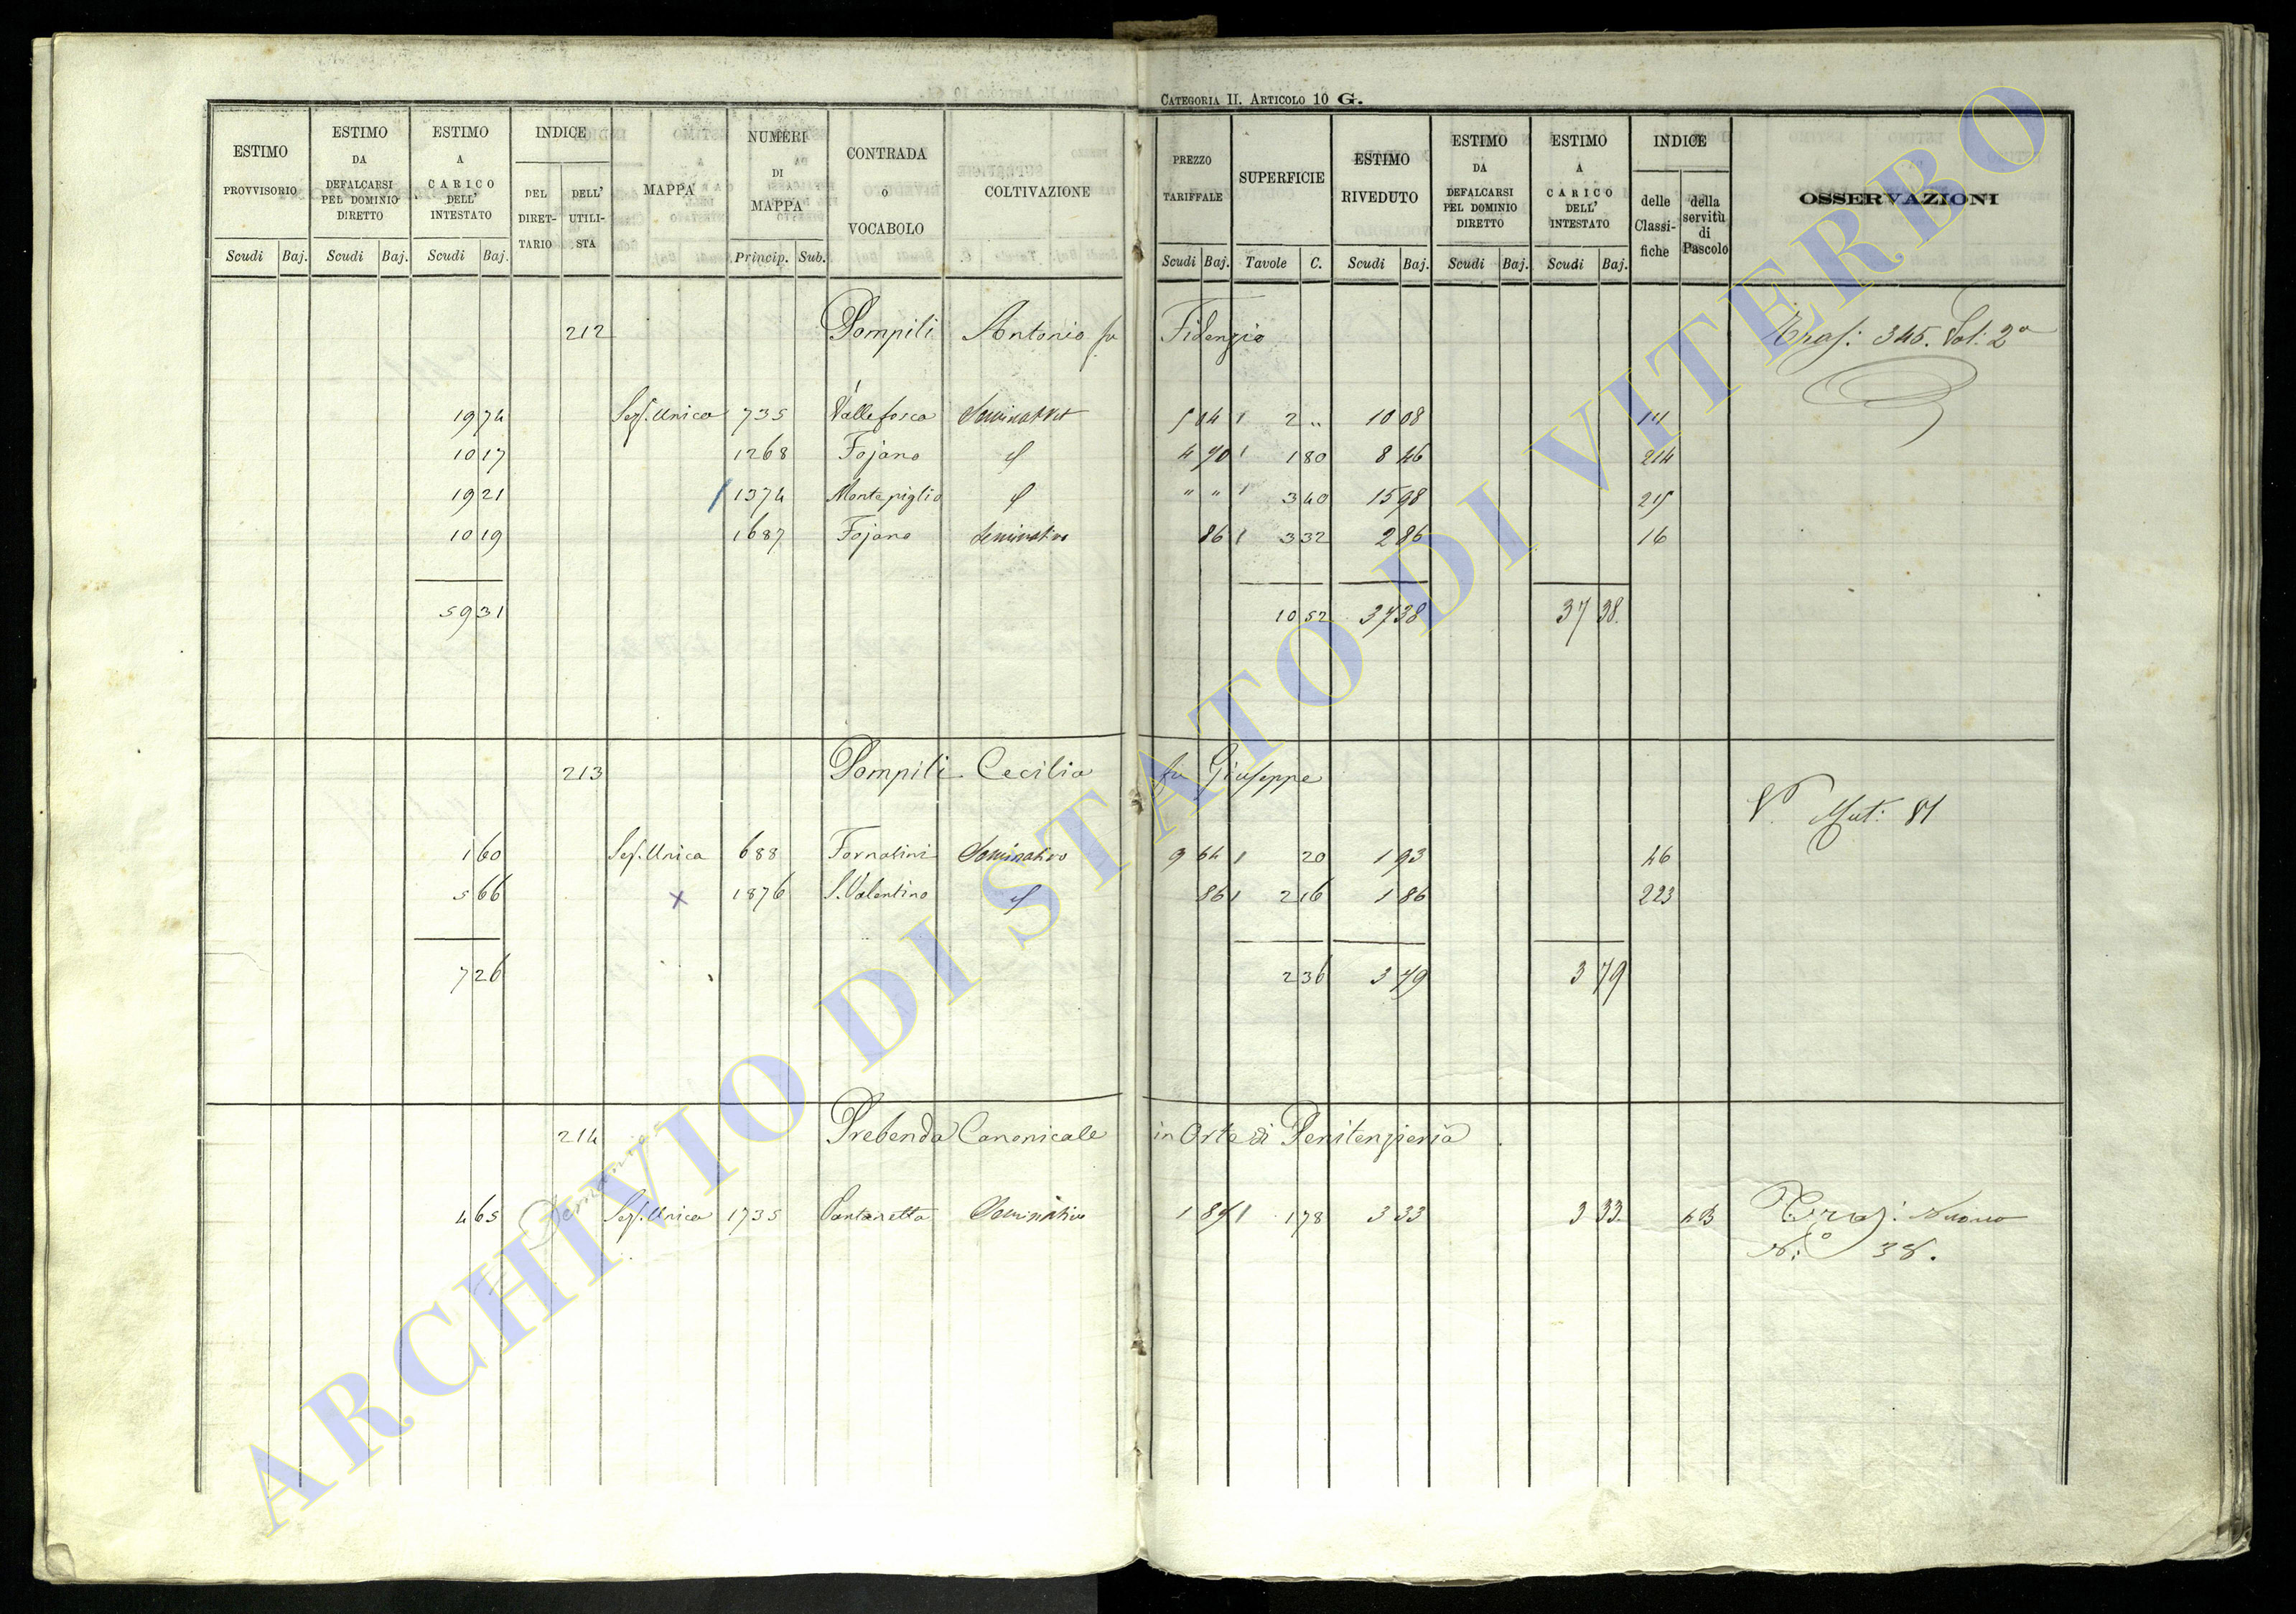 CATEGORIA II. ARTICOLO 10 G.
ESTIMO PROVVISORIO Scudi Baj. ESTIMO DA DEFALCARSI PEL DOMINIO DIRETTO Scudi Baj. ESTIMO A CARICO DELL' INTESTATO Scudi Baj. INDICE DEL DIRETTARIO DELL' UTILISTA MAPPA NUMERI DI MAPPA Princip. Sub. CONTRADA o VOCABOLO COLTIVAZIONE
PREZZO TARIFFALE Scudi Baj. SUPERFICIE Tavole C. ESTIMO RIVEDUTO Scudi Baj. ESTIMO DA DEFALCARSI PEL DOMINIO DIRETTO Scudi Baj. ESTIMO A CARICO DELL' INTESTATO Scudi Baj. INDICE delle Classifiche della servitù di Pascolo OSSERVAZIONI
212 Pompili Antonio fu Fidenzio Trasf: 345. Vol: 2ª
19 74 Sez. Unica 735 Vallefosca 5 04 1 2 „ 10 08
10 17 1268 Fojano 4 70 1 1 80 8 46 214
19 21 1374 Montepiglio " " 1 3 40 15 98 215
10 19 1687 Fojano Seminativo 86 1 3 32 2 86 16
59 31 10 52 37 38 37 38.
213 Pompili Cecilia fu Giuseppe
V. Mut: 81
1 60 Sez. Unica 688 Fornatini Seminativo 9 64 1 20 1 93 46
5 66 x 1876 S. Valentino 86 1 2 16 1 86 223
7 26 2 36 3 79 3 79
214 Prebenda Canonicale in Orte di Penitenzieria
4 65 Sez. Unica 1735 Pantanetta Seminativo 1 87 1 1 78 3 33 3 33.
N.º 38.
ARCHIVIO DI STATO DI VITERBO